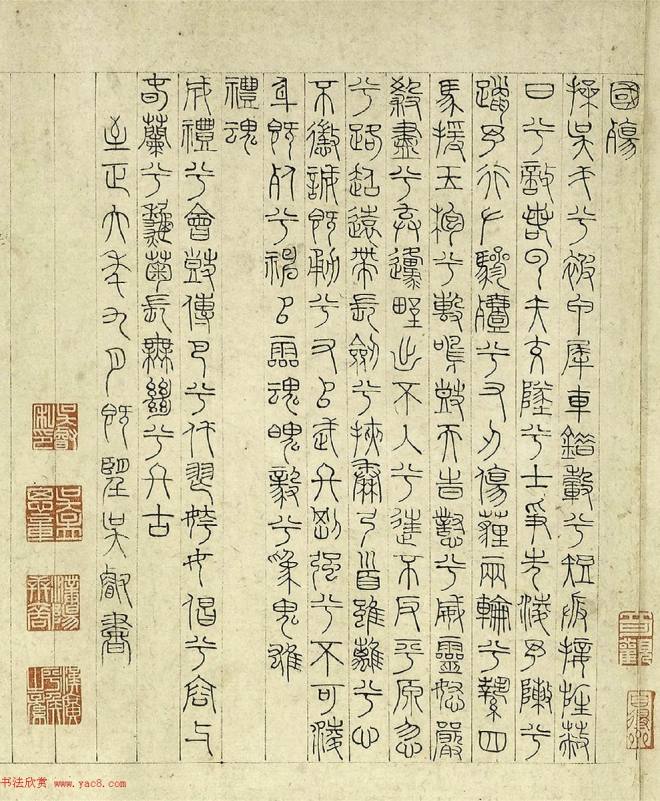 國殤
操吳戈兮被甲犀車錯轂兮短兵接旌蔽
日兮敵若雲矢交墜兮士爭先凌余陣兮
躐余行左驂殪兮右刃傷霾兩輪兮縶四
馬援玉枹兮擊鳴鼓天時懟兮威靈怒嚴
殺盡兮棄原野出不入兮往不反平原忽
兮路超遠帶長劍兮挾秦弓首雖離兮心
不懲誠既勇兮又以武終剛強兮不可凌
身既死兮神以靈魂魄毅兮為鬼雄
禮魂
成禮兮會鼓傳芭兮代舞姱女倡兮容與
春蘭兮秋菊長無絕兮終古
至正六年九月既望吳叡書
吳叡私印
吳孟思章
书法欣赏 www.yac8.com